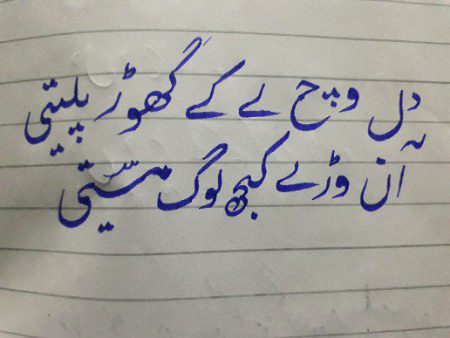 دل وچ لے کے گھوڑ پلیتی
آن وڑے کجھ لوگ مسیتی